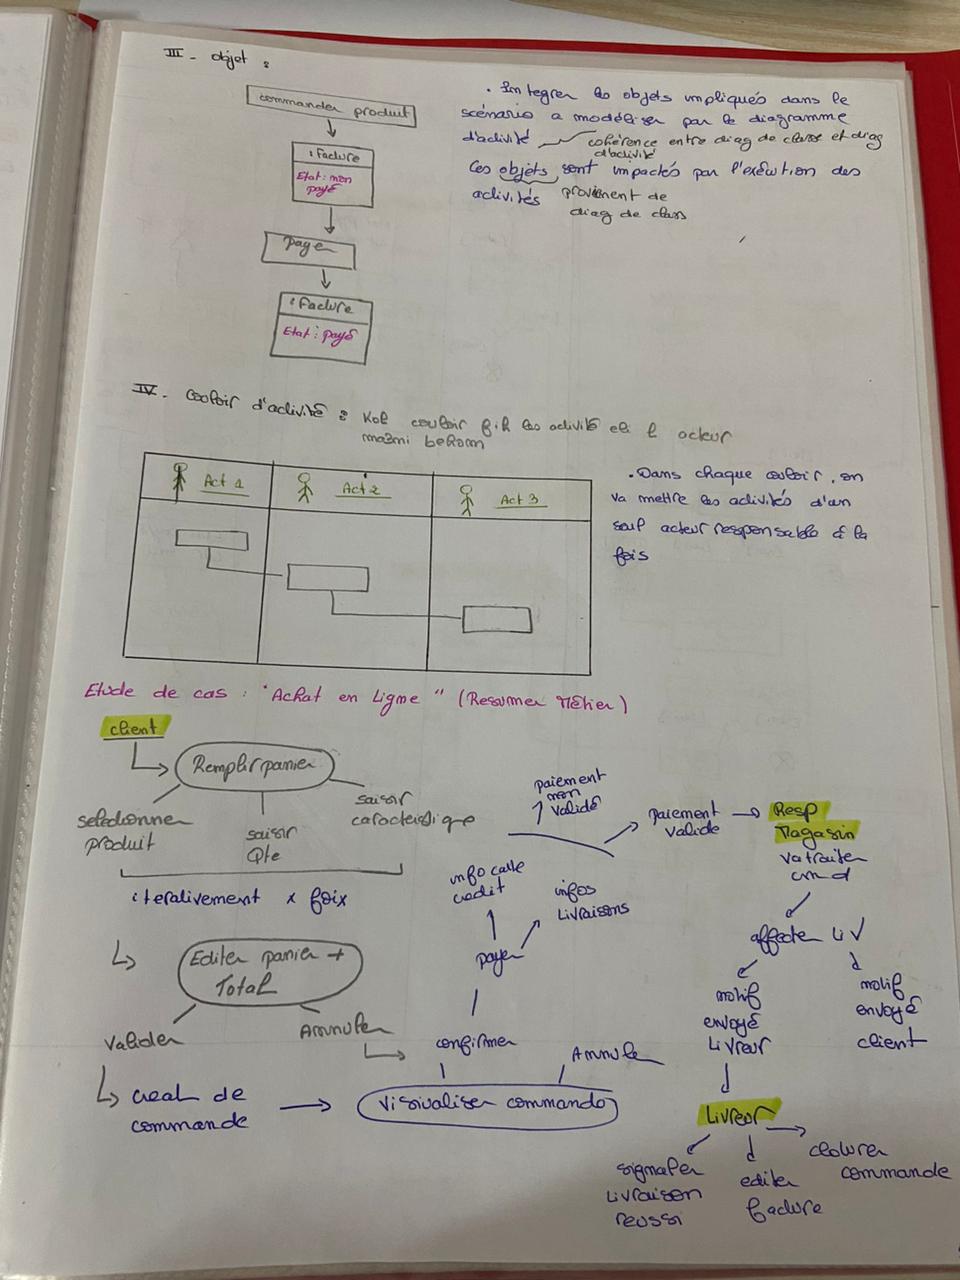 III - objet :
commander produit
: Facture
Etat : non
payé
Payer
: Facture
Etat : payé
. Integrer les objets impliqués dans le
scénario a modéliser par le diagramme
d'activité
cohérence entre diag de classe et diag
d'activité
Ces objets sont impactés par l'exécution des
activités
provienent de
diag de class
IV - Couloir d'activité : Kol couloir fih les activité eli l acteur
ma3ni behom
Act 1
Act 2
Act 3
. Dans chaque couloir, on
va mettre les activités d'un
seul acteur responsable à la
fois
Etude de cas : "Achat en Ligne" (Resumer Métier)
client
Remplir panier
selectionner
produit
saisir
Qte
saisir
caracteristique
iterativement x foix
Editer panier +
Total
Valider
Annuler
creat de
commande
Visivaliser commande
confirmer
Annule
payer
info carte
credit
infos
Livraisons
paiement
non
validé
paiement
valide
Resp
Magasin
va traiter
cmd
affecter LIV
motif
envoyé
Livreur
motif
envoyé
client
Livreur
signaler
Livraison
reussi
editer
facture
cloturer
commande